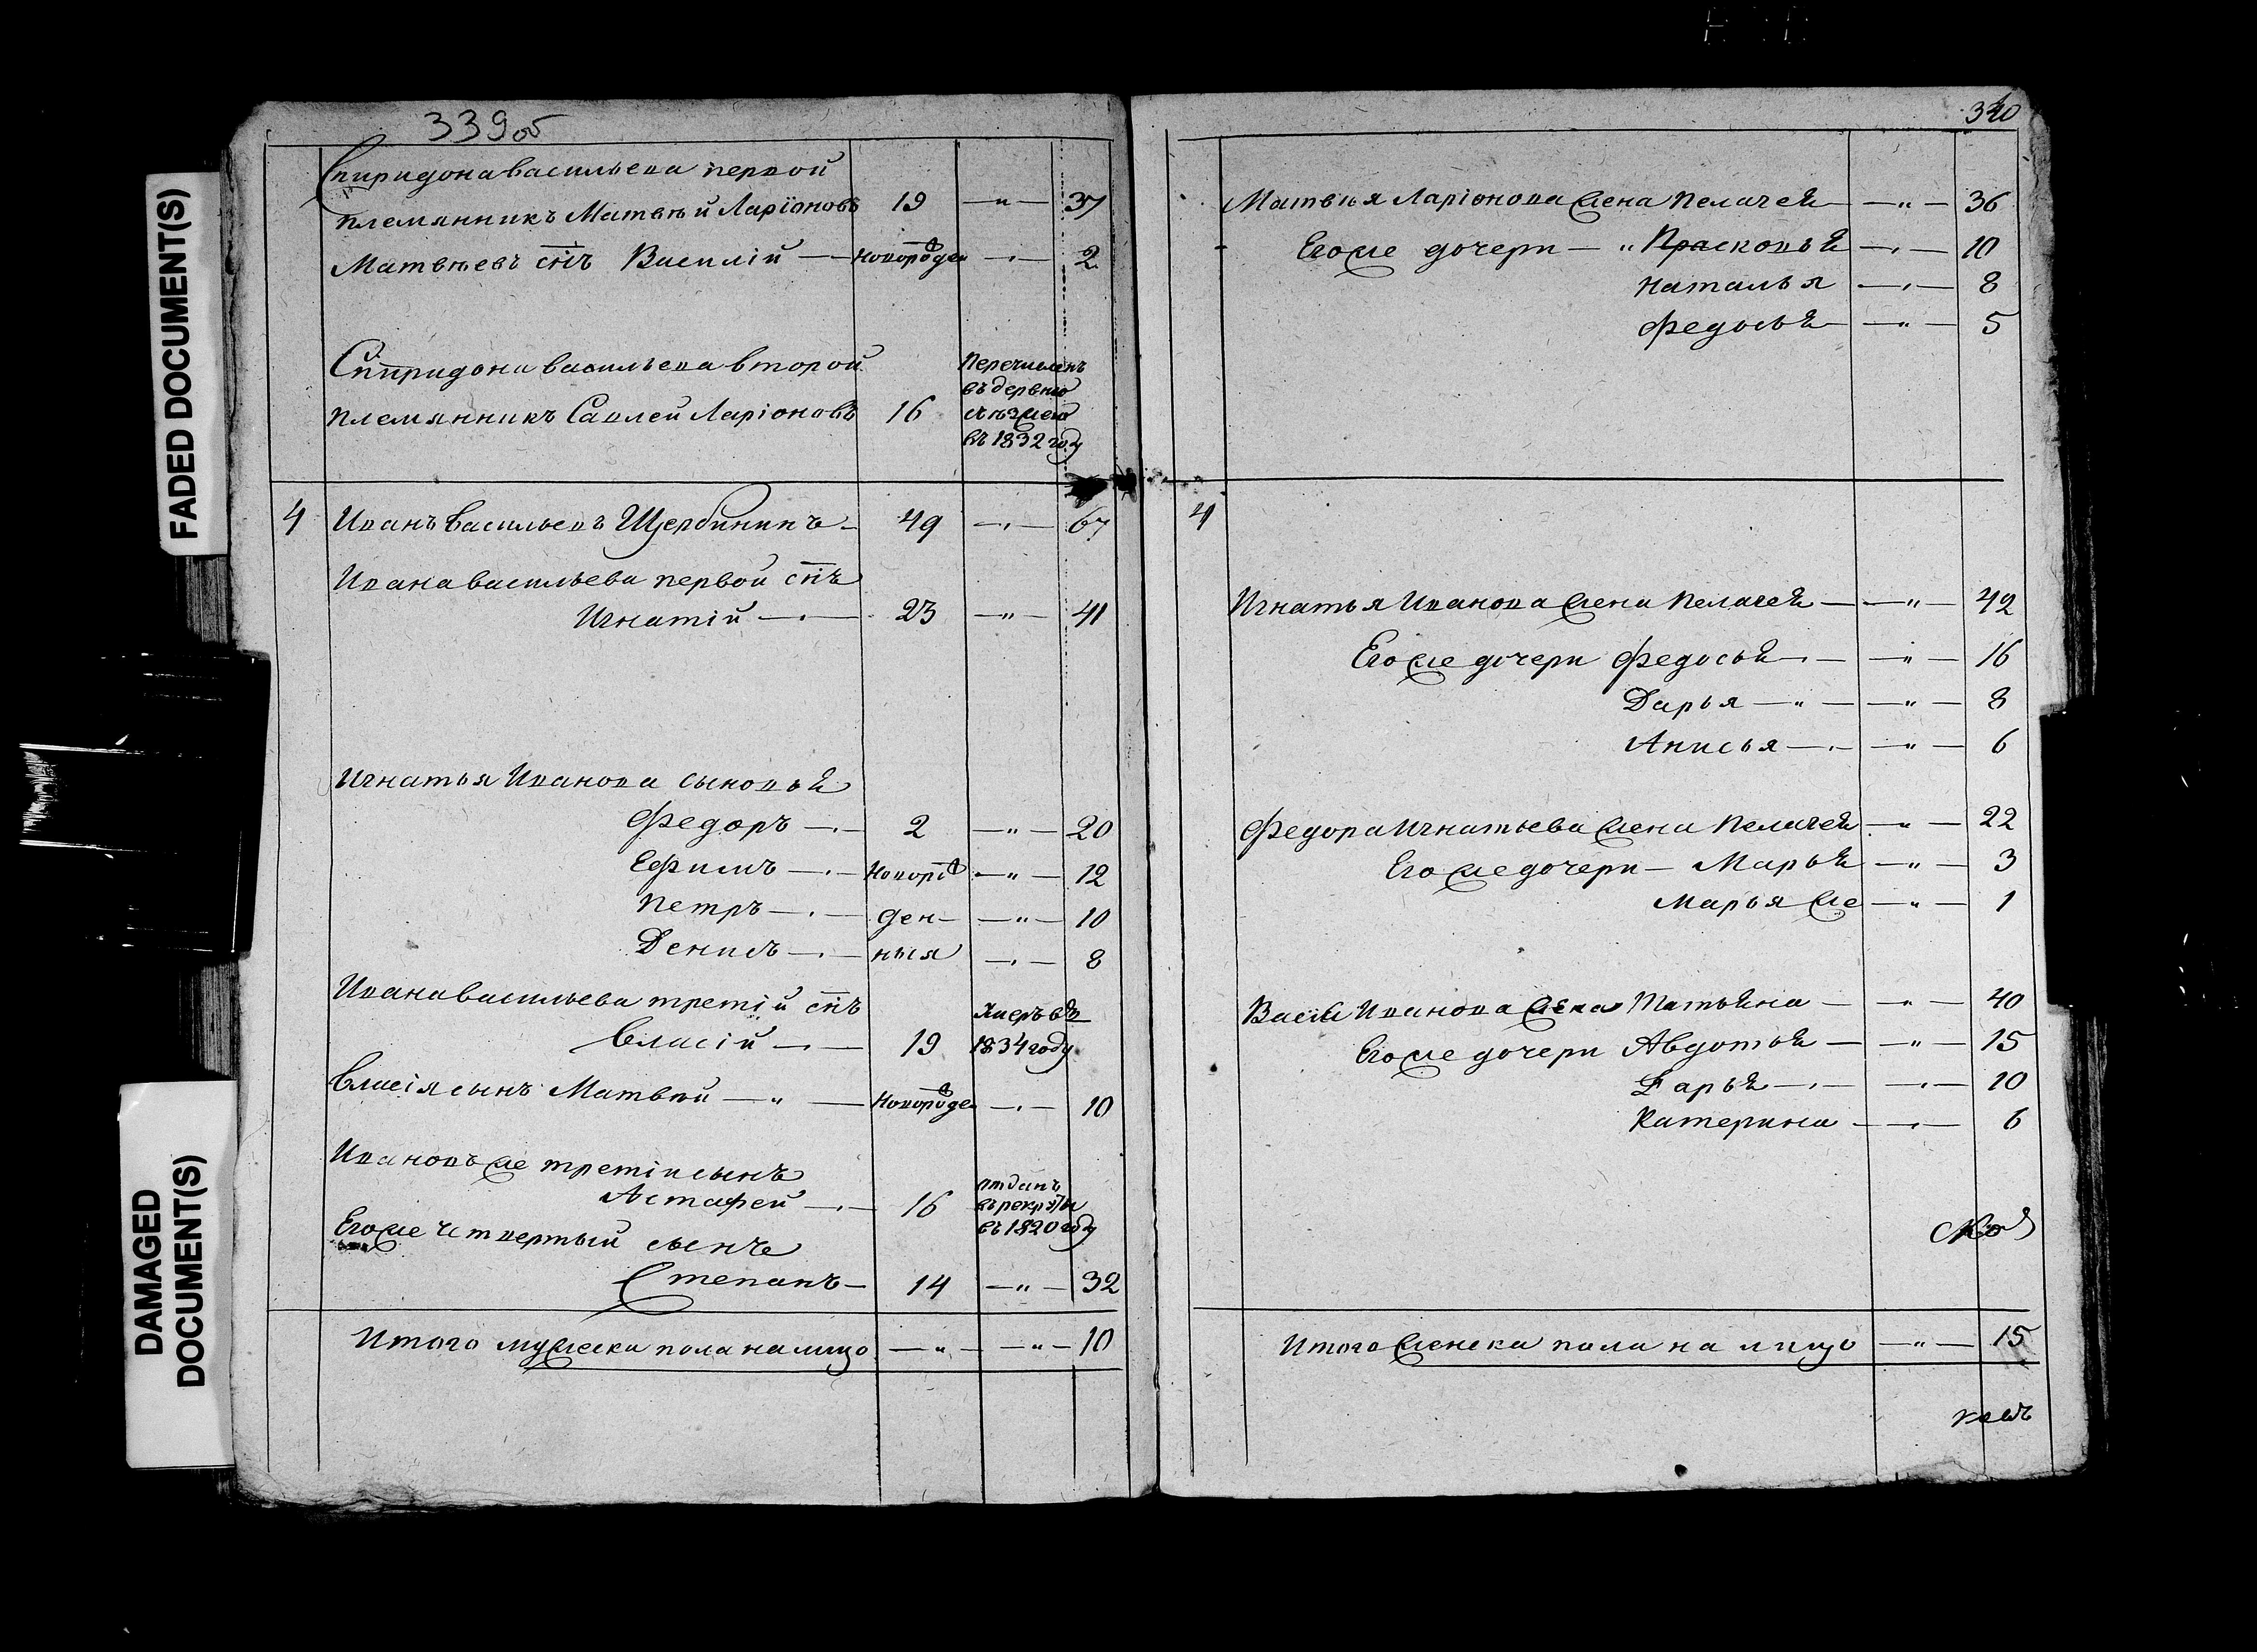 FADED DOCUMENT(S)
DAMAGED DOCUMENT(S)
339об
Спиридона Васильева первой
племянникъ Матвѣй Ларіоновъ 19 — " — 37
Матвѣевъ снъ Василій — новорожден — " — 2
Спиридона Васильева второй
племянникъ Савлей Ларіоновъ 16
Перечисленъ
въ дервню
въ 1832 году
4 Иванъ Васильевъ Щербининъ — 49 — " — 67
Ивана Васильева первой снъ
Игнатій — 23 — " — 41
Игнатья Иванова сыновья
Федоръ — 2 — " — 20
Ефимъ — новоро — " — 12
Петръ — ден — " — 10
Денисъ — ныя — " — 8
Ивана Васильева третій снъ
Власій — 19 Умеръ въ
1834 году
Власія сынъ Матвѣй — " — новорожден — " — 10
Ивановъ же третій сынъ
Астафей — 16
отданъ
въ рекруты
въ 1820 году
Его же четвертый сынъ
Степанъ — 14 — " — 32
Итого мужеска пола на лицо — " — — " — 10
340
Матвѣя Ларіонова жена Пелагея — " — 36
Его же дочери — " Прасковья — " — 10
Наталья — " — 8
Федосья — " — 5
4
Игнатья Иванова жена Пелагея — " — 42
Его же дочери Федосья — " — 16
Дарья — " — — " — 8
Анисья — " — 6
Федора Игнатьева жена Пелагея — " — 22
Его же дочери — Марья — " — 3
Марья же — " — 1
Иванова жена Татьяна — " — 40
Его же дочери Авдотья — " — 15
Дарья — " — 10
Катерина — " — 6
Итого женска пола на лицо — " — 15